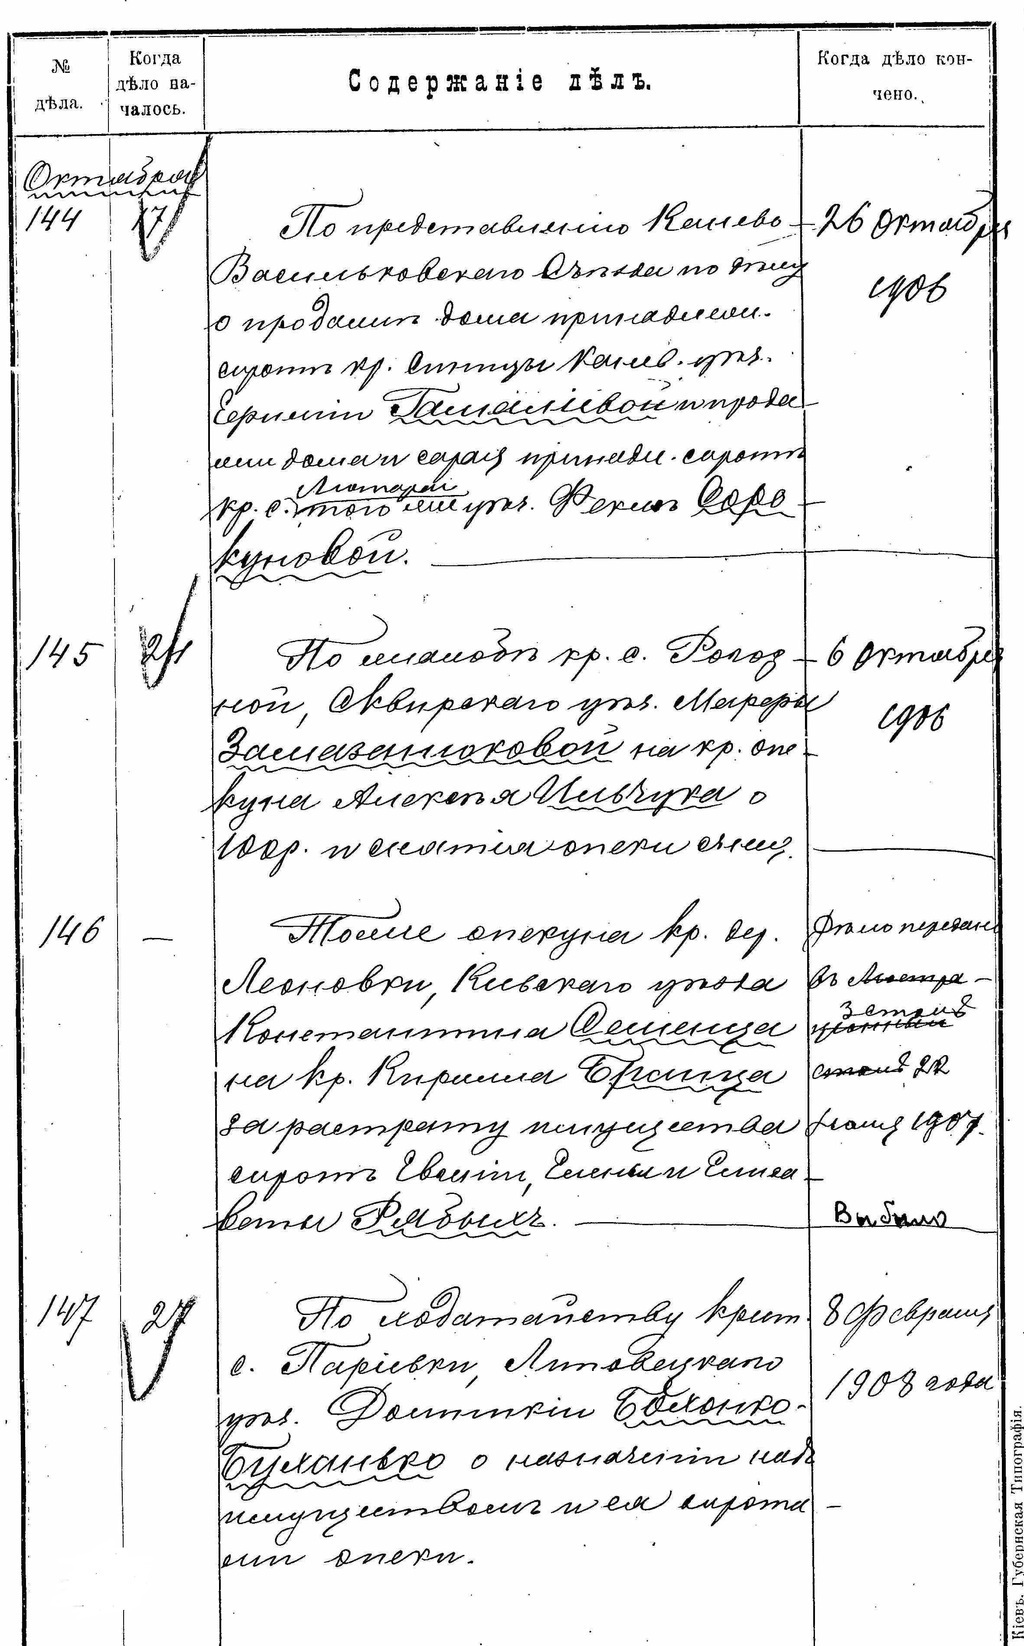 № дѣла.
Когда дѣло началось.
Содержаніе дѣлъ.
Когда дѣло кончено.
Октября
144 17
По представленію Канево-
Васильковскаго Съѣзда по дѣлу
о продажѣ дома принадлежа.
сиротѣ кр. Синицы Канев. уѣз.
Гамалѣевой и прода
жи дома и сарая принадл. сиротѣ
Лютарей
кр. с. того же уѣз. Феклѣ Соро
куновой.
26 Октября
1906
145 21
По жалобѣ кр. с. Рогоз
ной, Сквирскаго уѣз. Марфы
Замазанюковой на кр. опе
куна Алексѣя Ильчука о
100 р. и снятія опеки
6 Октября
1906
146 —
Тоже опекуна кр. дер.
Леоновки, Кіевскаго уѣзда
Константина Семенца
на кр. Кирилла
за растрату имущества
сиротъ Евгеніи, Елены и Елиза
веты Рябыхъ.
Дѣло передано
въ
3 столъ
столъ 22
1907.
Выбыло
147 27
По ходатайству крест.
с. Паріевки, Липовецкаго
уѣз. Домникіи Бохонко-
Буханько о назначеніи надъ
имуществомъ и ея сирота
ми опеки.
8 Февраля
1908 года
Кіевъ. Губернская Типографія.